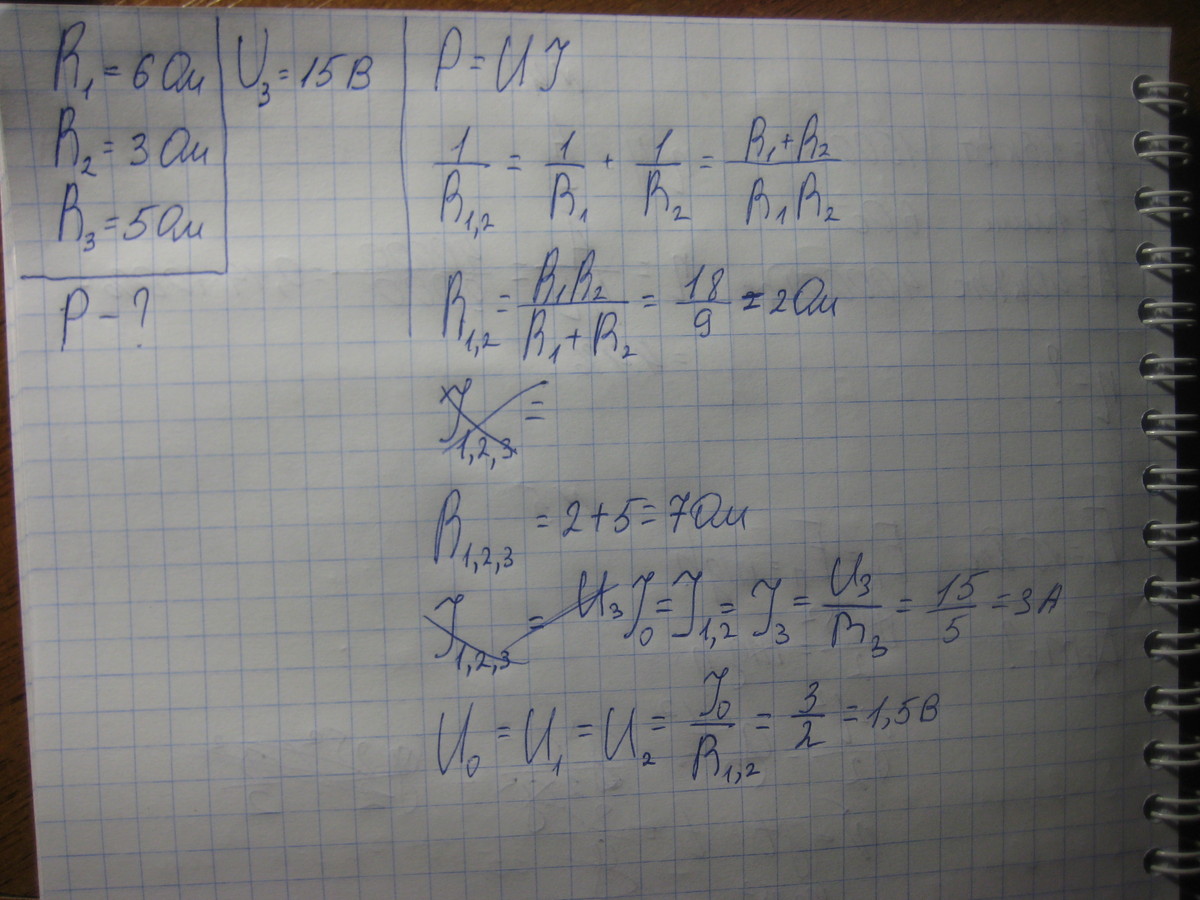 R₁ = 6 Ом
R₂ = 3 Ом
R₃ = 5 Ом
P – ?
U₃ = 15 В
P = UJ
1/R₁,₂ = 1/R₁ + 1/R₂ = (R₁+R₂)/(R₁R₂)
R₁,₂ = R₁R₂/(R₁+R₂) = 18/9 = 2 Ом
J₁,₂,₃ =
R₁,₂,₃ = 2+5 = 7 Ом
J₁,₂,₃ = U₃ J₀ = J₁,₂ = J₃ = U₃/R₃ = 15/5 = 3 А
U₀ = U₁ = U₂ = J₀/R₁,₂ = 3/2 = 1,5 В